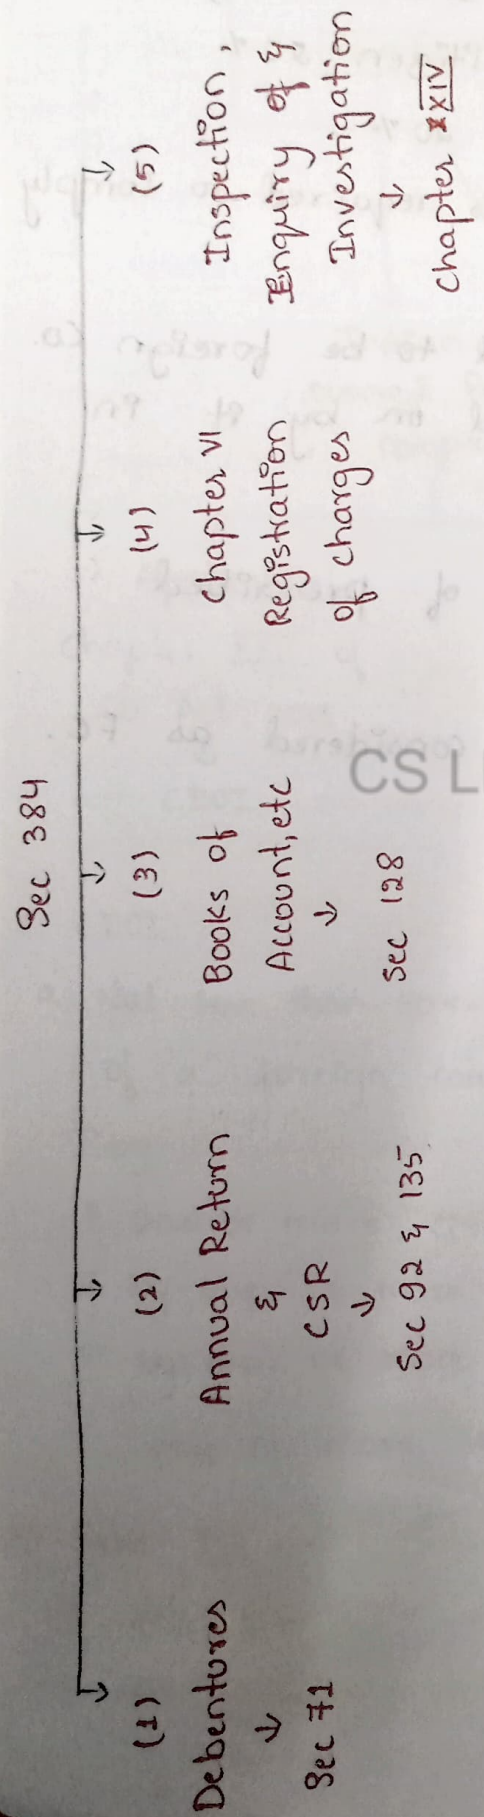 Sec 384
(1)
Debentures
↓
Sec 71
(2)
Annual Return
&
CSR
↓
Sec 92 & 135
(3)
Books of
Account, etc
↓
Sec 128
(4)
Chapter VI
Registration
of charges
(5)
Inspection,
Enquiry of &
Investigation
↓
Chapter XXIV
CS L